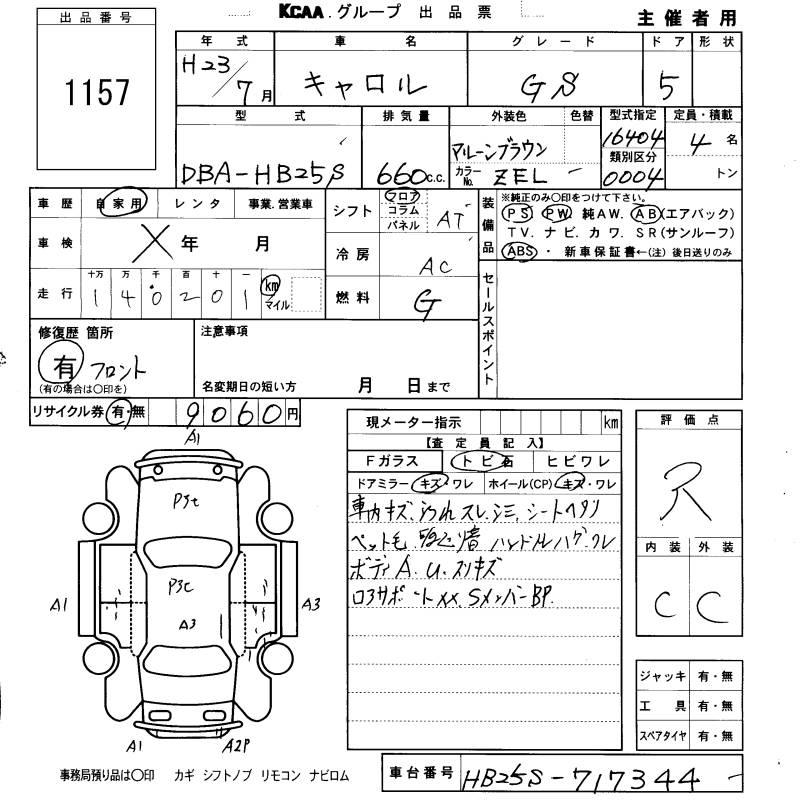 KCAA.グループ 出品票
主催者用
出品番号
1157
年式 車名 グレード ドア 形状
H23/7月 キャロル GS 5
型式 排気量 外装色 色替 型式指定 定員・積載
DBA-HB25S 660c.c. マルーンブラウン 16404 4名
カラーNo. ZEL 類別区分 0004 トン
車歴 自家用 レンタ 事業.営業車
車検 X年 月
走行 十万 万 千 百 十 一
140201 km マイル
シフト フロア コラム パネル AT
冷房 AC
燃料 G
装備品
※純正のみ○印をつけて下さい。
PS PW 純AW. AB(エアバック)
TV. ナビ. カワ. SR(サンルーフ)
ABS・ 新車保証書←(注)後日送りのみ
セールスポイント
修復歴 箇所
有 フロント
(有の場合は○印を)
注意事項
名変期日の短い方 月 日まで
リサイクル券 有・無 9060円
現メーター指示 km
【査定員記入】
Fガラス トビ石 ヒビワレ
ドアミラー キズ・ワレ ホイール(CP) キズ・ワレ
車内キズ. スレ. シミ. シートヘタリ
ペット毛 ハンドルハゲ.ワレ
ボディ A. U. スリキズ
コアサポートXX. SメンバーBP.
評価点
R
内装 外装
C C
A1
A1
A3
A3
A1
A2P
ジャッキ 有・無
工具 有・無
スペアタイヤ 有・無
事務局預り品は○印 カギ シフトノブ リモコン ナビロム
車台番号 HB25S-717344